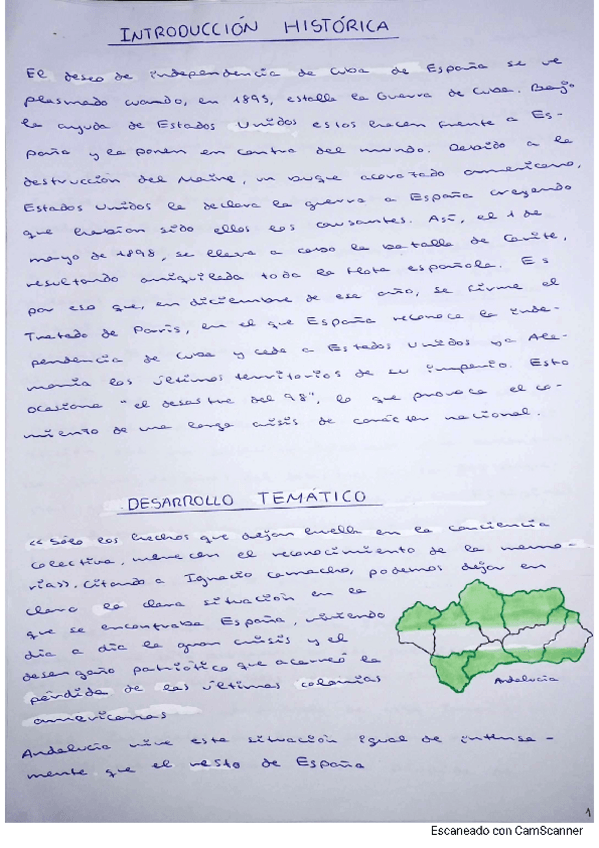 INTRODUCCIÓN HISTÓRICA
El deseo de independencia de Cuba de España se ve
plasmado cuando, en 1895, estalla la Guerra de Cuba. Bajo
la ayuda de Estados Unidos estos hacen frente a Es-
paña y la ponen en contra del mundo. Debido a la
destrucción del Maine, un buque acorazado americano,
Estados Unidos le declara la guerra a España creyendo
que habían sido ellos los causantes. Así, el 1 de
mayo de 1898, se lleva a cabo la batalla de Cavite,
resultando aniquilada toda la flota española. Es
por eso que, en diciembre de ese año, se firme el
Tratado de París, en el que España reconoce la inde-
pendencia de Cuba y cede a Estados Unidos y a Ale-
mania los últimos territorios de su imperio. Esto
ocasiona "el desastre del 98", lo que provoca el co-
miento de una larga crisis de carácter nacional.
DESARROLLO TEMÁTICO
<<Sólo los hechos que dejan huella en la conciencia
colectiva, merecen el reconocimiento de la memo-
ria>>. Citando a Ignacio Camacho, podemos dejar en
clara la clara situación en la
que se encontraba España, viviendo
día a día la gran crisis y el
desengaño patriótico que acarreó la
pérdida de las últimas colonias
americanas
Andalucía
Andalucía vive esta situación igual de intensa-
mente que el resto de España
1
Escaneado con CamScanner